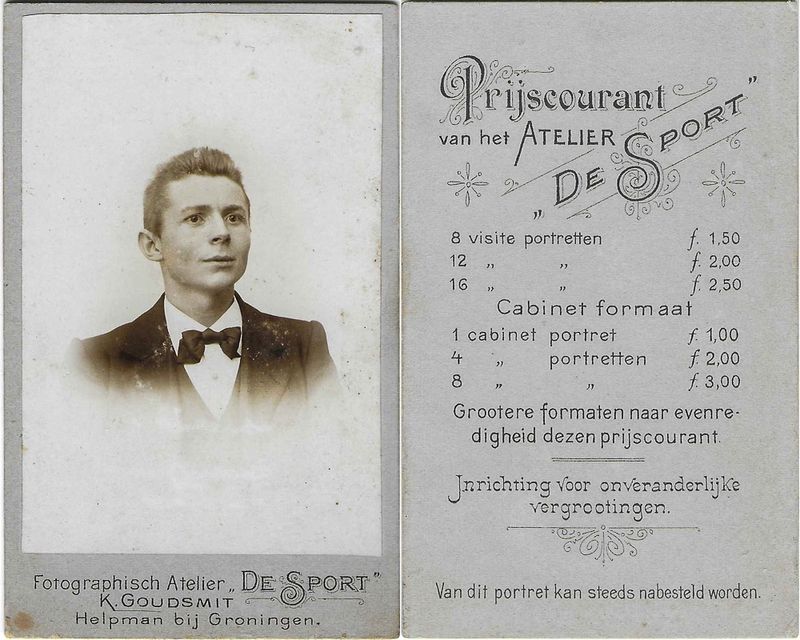 Fotographisch Atelier „DE SPORT”
K. GOUDSMIT
Helpman bij Groningen.
Prijscourant
van het ATELIER
„DE SPORT”
8 visite portretten f. 1,50
12 „ „ f. 2,00
16 „ „ f. 2,50
Cabinet formaat
1 cabinet portret f. 1,00
4 „ portretten f. 2,00
8 „ „ f. 3,00
Grootere formaten naar evenre-
digheid dezen prijscourant.
Inrichting voor onveranderlijke
vergrootingen.
Van dit portret kan steeds nabesteld worden.